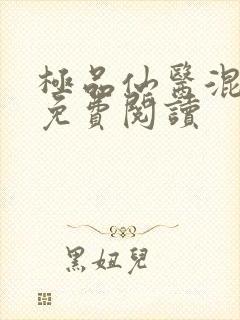 極品仙醫混
免費閱讀
黑妞兒